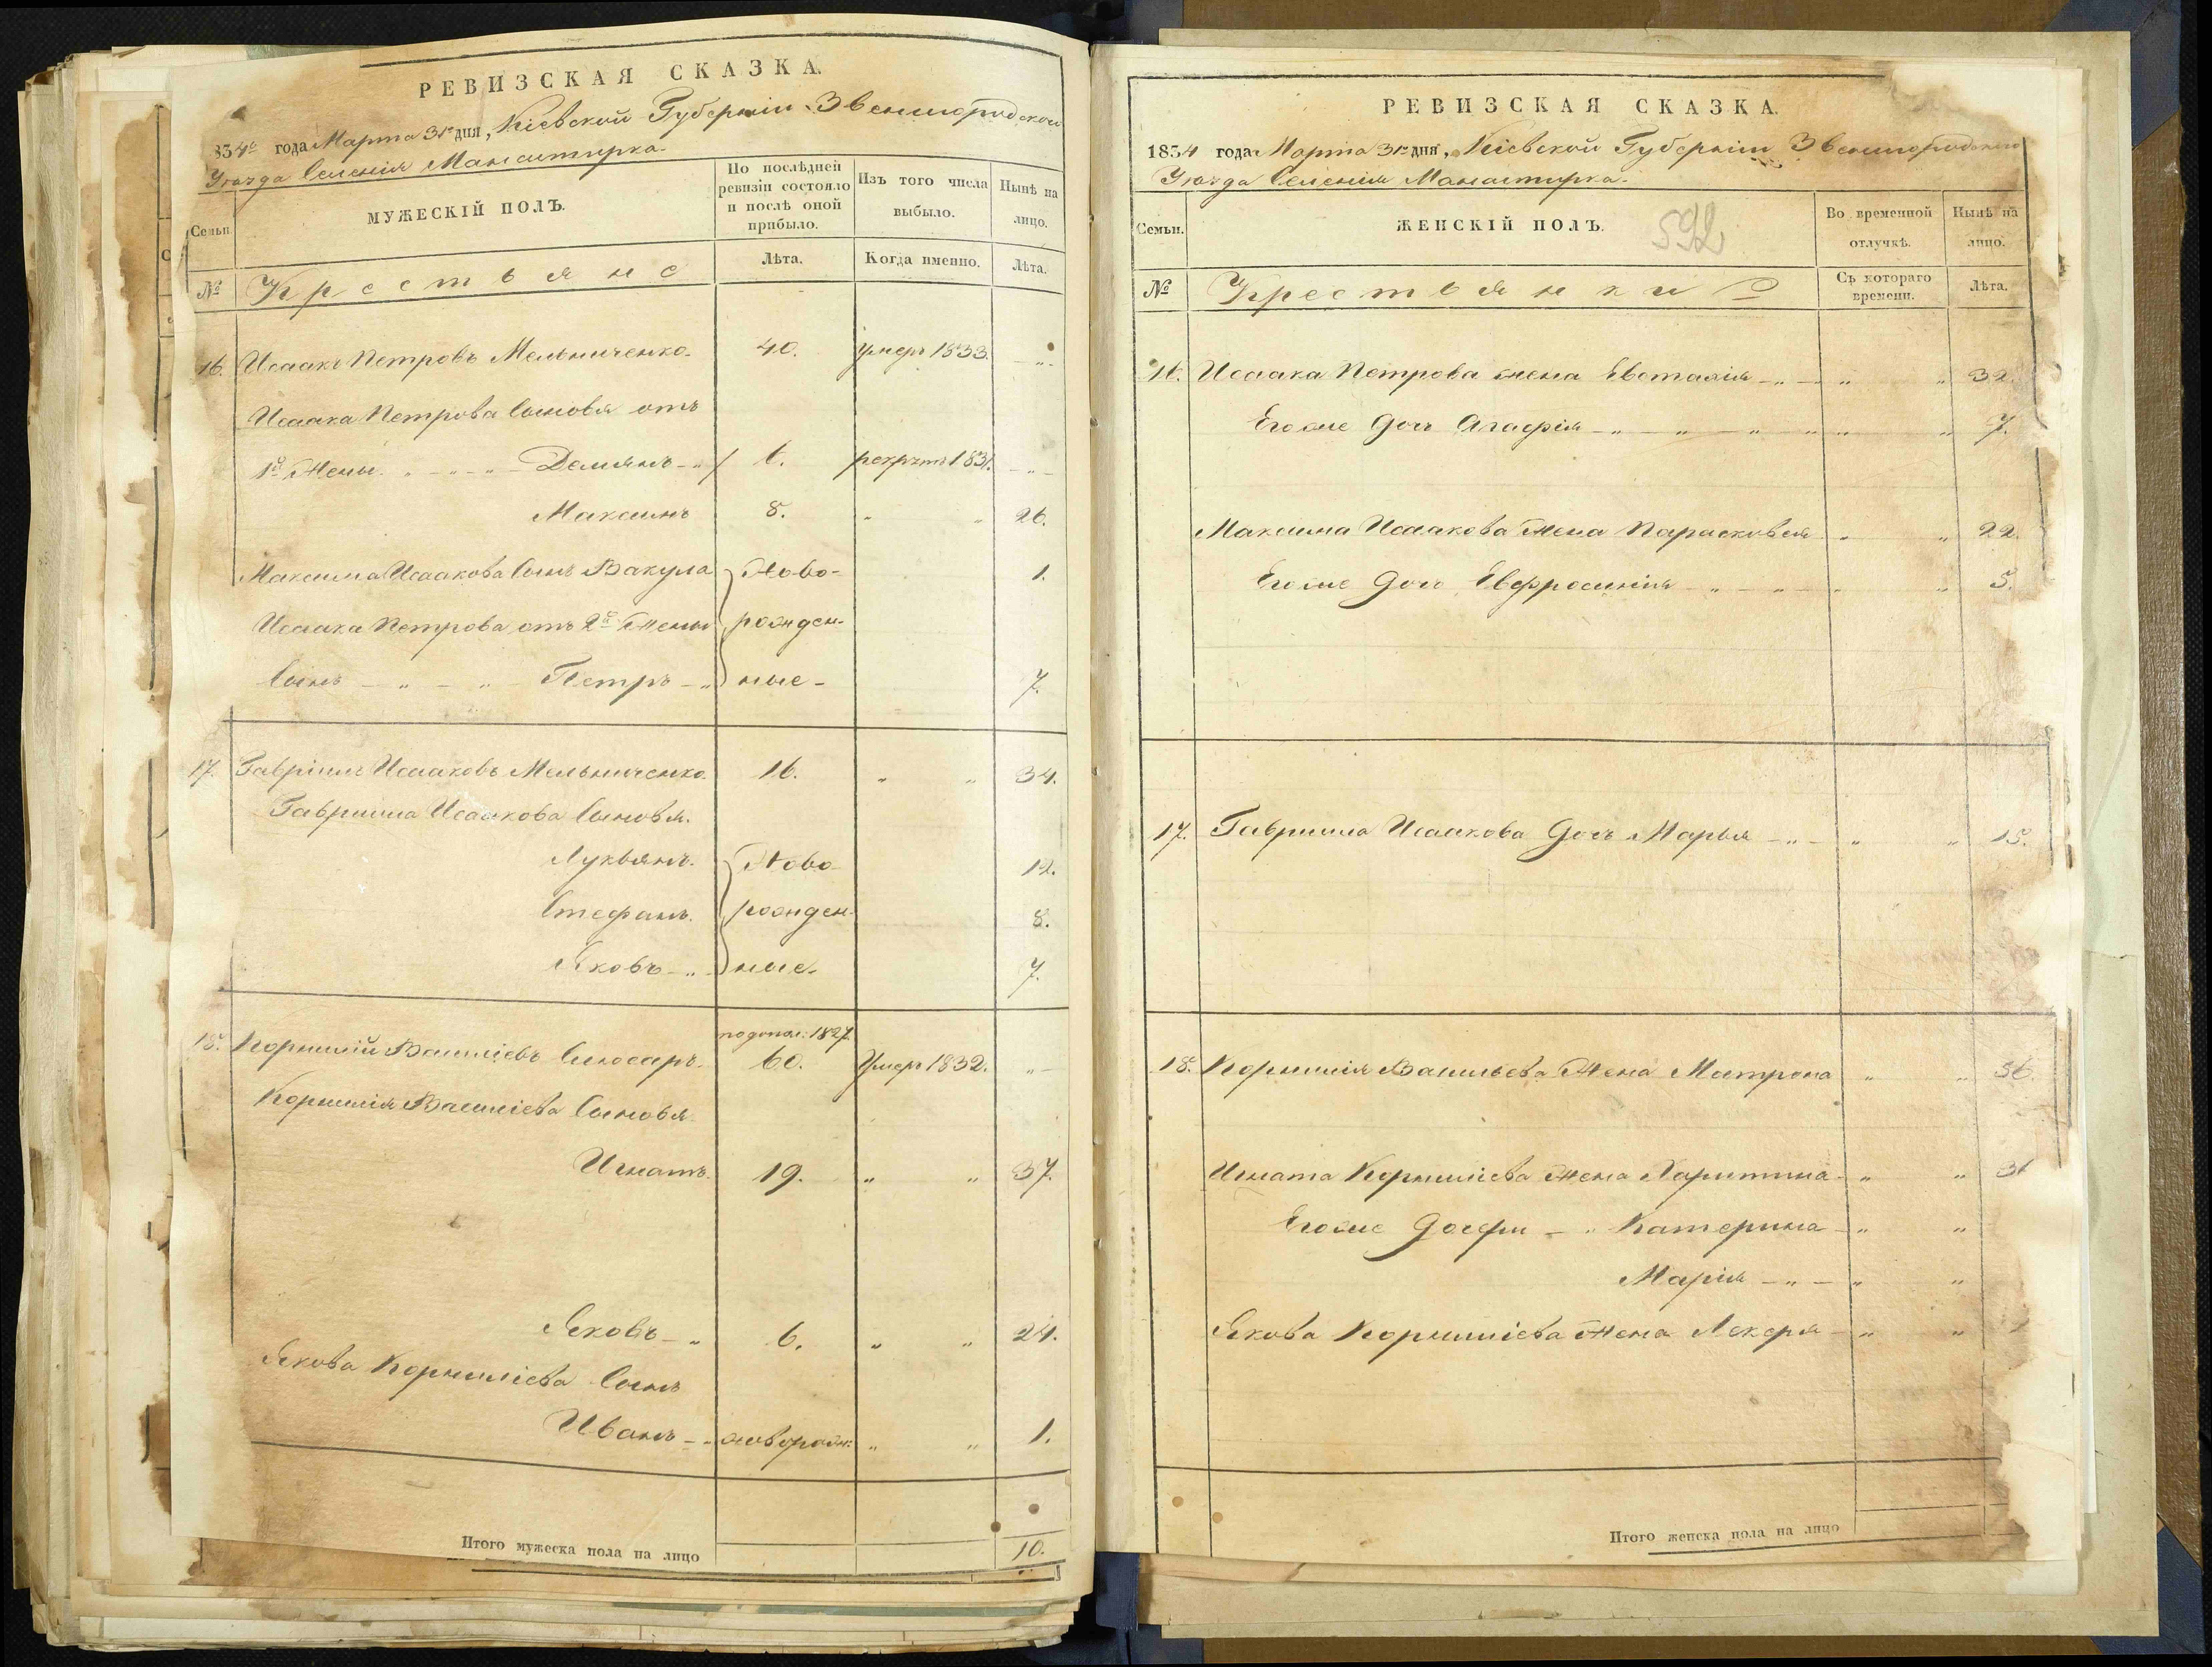 РЕВИЗСКАЯ СКАЗКА.
834го года Марта 31го дня, Кіевской Губерніи Звенигородской
Уѣзда Селенія Манастирка.
Семьи.
МУЖЕСКІЙ ПОЛЪ.
По послѣдней ревизіи состояло и послѣ оной прибыло.
Изъ того числа выбыло.
Нынѣ на лицо.
№
Крестьяне
Лѣта.
Когда именно.
Лѣта.
16. Исаакъ Петровъ Мельниченко. 40. умеръ 1833. „
Исаака Петрова Сыновья отъ
1й Жены „ „ „ Демянъ „ 6. рекрутъ 1831. „
Максимъ 8. „ „ 26.
Максима Исаакова Сынъ Вакула Ново- 1.
Исаака Петрова отъ 2й Жены рожден-
Сынъ „ „ Петръ „ ные 7.
17. Гавріилъ Исааковъ Мельниченко. 16. „ „ 34.
Гавриила Исаакова Сыновья.
Лукьянъ. Ново- 12.
Стефанъ. рожден- 8.
Яковъ „ ные. 7.
18. Корнилій Василіевъ Слюсаръ. 60. Умеръ 1832. „
1827.
Корнилія Василіева Сыновья.
Игнатъ. 19. „ „ 37.
Яковъ „ 6. „ „ 24.
Якова Корниліева Сынъ
Иванъ „ новорожд: „ „ 1.
Итого мужеска пола на лицо 10.
РЕВИЗСКАЯ СКАЗКА.
1834 года Марта 31го дня, Кіевской Губерніи Звенигородского
Уѣзда Селенія Манастирка.
Семьи.
ЖЕНСКІЙ ПОЛЪ.
592
Во временной отлучкѣ.
Нынѣ на лицо.
№
Крестьянки
Съ котораго времени.
Лѣта.
16. Исаака Петрова жена Евстафія „ „ „ 32.
Егоже дочь Агафія „ „ „ „ „ „ 7.
Максима Исаакова Жена Парасковья „ „ 22.
Егоже дочь Евфросинія „ „ „ „ 5.
17. Гавриила Исаакова Дочь Марья „ „ „ 15.
18. Корнилія Васильева Жена Матрона „ „ 56.
Игната Корниліева Жена Харитина „ „ 31
Егоже дочери „ Катерина „ „
Марія „ „ „
Якова Корниліева Жена Лекеря „ „
Итого женска пола на лицо